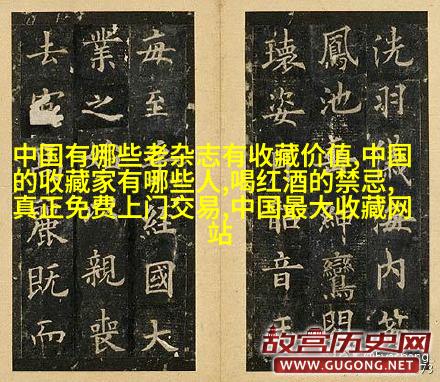 洗羽儀海内
鳳池紳鸞閣
瓌姿韶音
毎至經國大
業之親喪
去官麗既而
中国有哪些老杂志有收藏价值,中国
的收藏家有哪些人,喝红酒的禁忌,
真正免费上门交易,中国最大收藏网
站
故宫历史网
HTTPS://WWW.GUGONG.NET
73